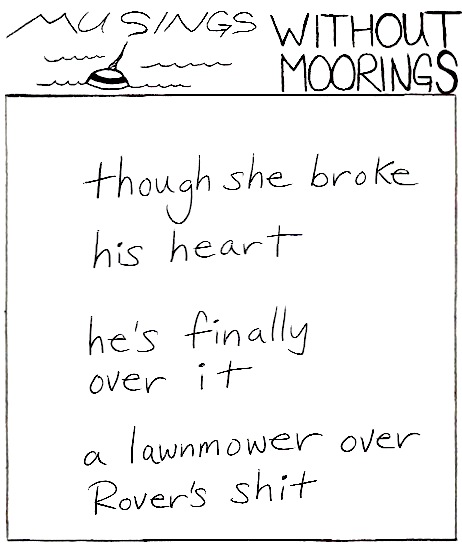 MUSINGS WITHOUT
MOORINGS
though she broke
his heart
he's finally
over it
a lawnmower over
Rover's shit